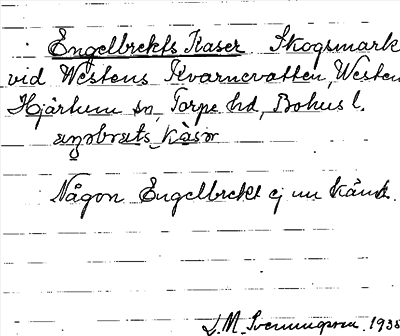 Engelbrekts Kaser Skogsmark
vid Westens Kvarnevatten, Westen
Hjärtum sn, Torpe hd, Bohus l.
Någon Engelbrekt ej nu känd.
L. M. Svenungsson. 1938